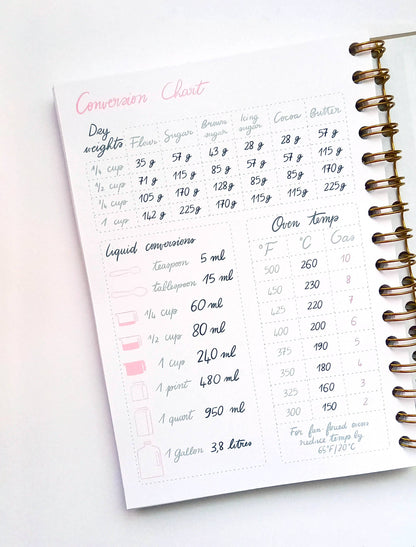 Conversion Chart
Dry weights Flour Sugar Brown sugar Icing sugar Cocoa Butter
1/4 cup 35 g 57 g 43 g 28 g 28 g 57 g
1/2 cup 71 g 115 g 85 g 57 g 57 g 115 g
3/4 cup 105 g 170 g 128g 85g 85g 170g
1 cup 142 g 225g 170g 115g 115g 225g
Liquid conversions
teaspoon 5 ml
tablespoon 15 ml
1/4 cup 60 ml
1/2 cup 80 ml
1 cup 240 ml
1 print 480 ml
1 quart 950 ml
1 gallon 3,8 litres
Oven temp
°F °C Gas
500 260 10
450 230 8
425 220 7
400 200 6
375 190 5
350 180 4
325 160 3
300 150 2
For fan-forced ovens
reduce temp by
65°F/20°C